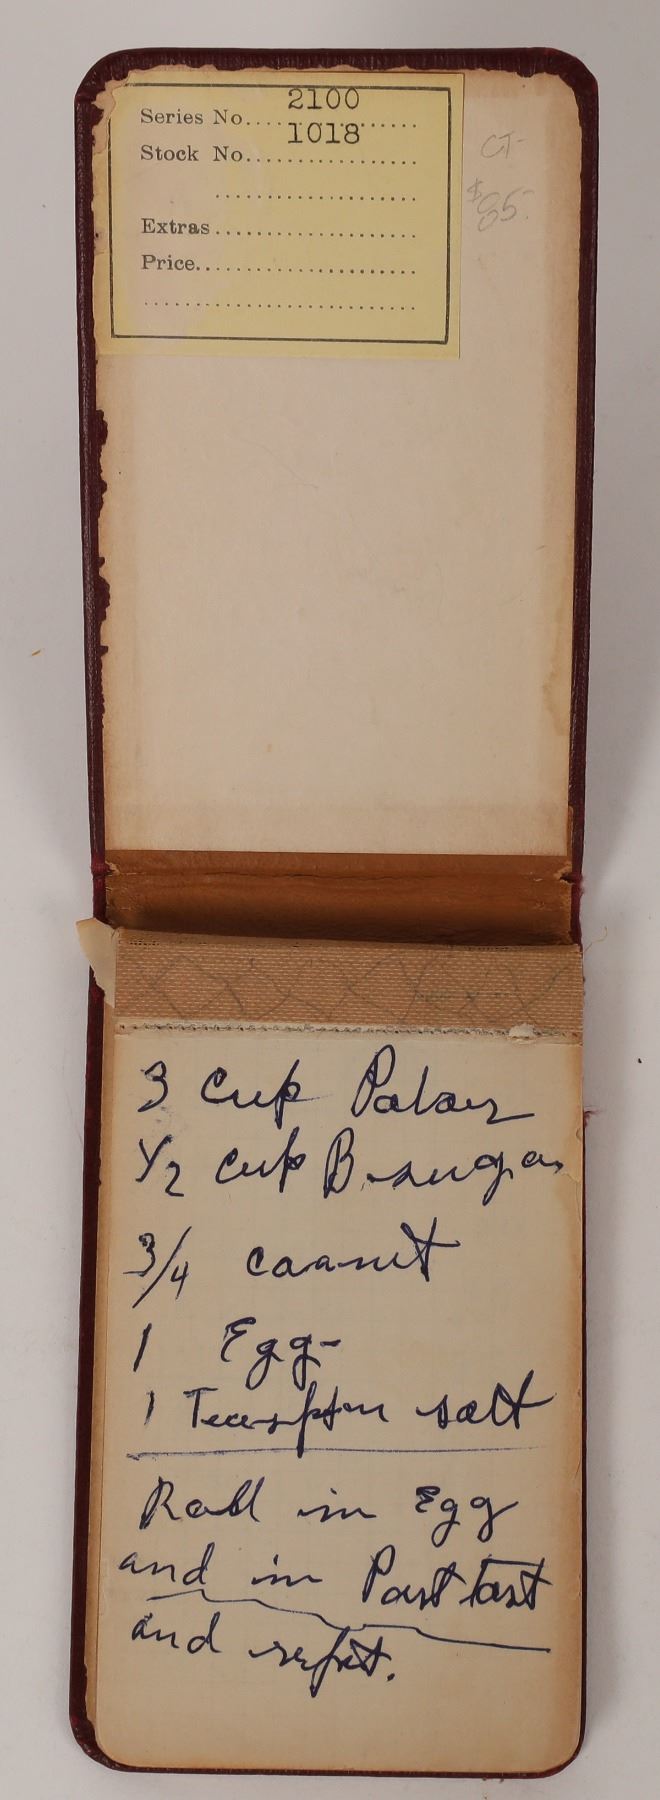 2100
Series No
1018
Stock No
Extras
Price
CT-
$85-
3 cup
1/2 cup B. sugar
3/4
1 Egg-
1 Teaspton salt
Roll in Egg
and in Post tost
and repet.